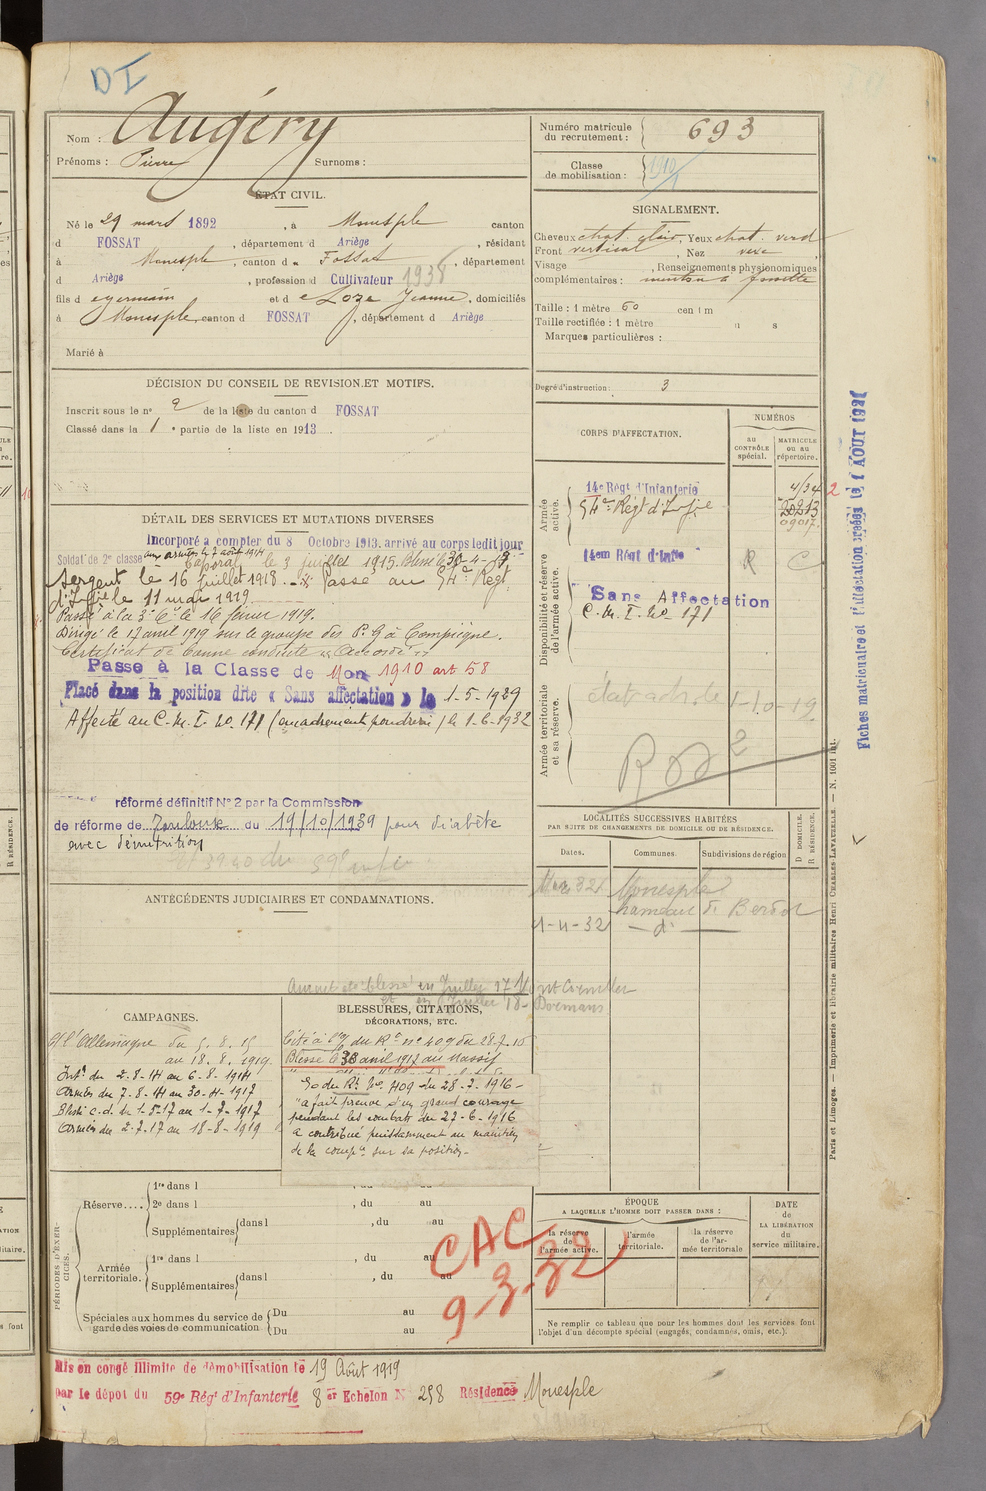 DI
Nom : Augéry
Prénoms : Pierre Surnoms :
Numéro matricule
du recrutement : 693
Classe
de mobilisation : 1910
ÉTAT CIVIL.
Né le 29 mars 1892, à Monesple canton
d FOSSAT, département d Ariège, résidant
à Monesple, canton d Fossat, département
d Ariège, profession d Cultivateur 1938
fils d germain et d e Loze Jeanne, domiciliés
à Monesple, canton d FOSSAT, département d Ariège
Marié à
SIGNALEMENT.
Cheveux chat. clair, Yeux chat. verd
Front vertical, Nez vexe,
Visage , Renseignements physionomiques
complémentaires : menton à fossette
Taille : 1 mètre 60 centim
Taille rectifiée : 1 mètre
Marques particulières :
Degré d'instruction : 3
DÉCISION DU CONSEIL DE REVISION ET MOTIFS.
Inscrit sous le n° 2 de la liste du canton d FOSSAT
Classé dans la 1e partie de la liste en 1913
DÉTAIL DES SERVICES ET MUTATIONS DIVERSES
Incorporé à compter du 8 Octobre 1913. arrivé au corps ledit jour
Soldat de 2e classe aux armées le 7 août 1914
Caporal le 3 juillet 1915. Blessé le 30-4-17
Sergent le 16 juillet 1918. Passé au 54e Régt
d'Infie le 11 mai 1919
Passé à la 3e Cie le 16 février 1919.
Dirigé le 17 avril 1919 sur le groupe des P. G à Compiègne.
Certificat de bonne conduite "Accordé"
Passé à la Classe de Mon 1910 art 58
Placé dans la position dite « Sans affectation » le 1-5-1929
Affecté au C. M. I. No. 171 (encadrement poudrerie) le 1-6-1932
réformé définitif N° 2 par la Commission
de réforme de Toulouse du 19/10/1939 pour diabète
avec dénutrition
CORPS D'AFFECTATION.
NUMÉROS
au
CONTRÔLE
spécial.
MATRICULE
ou au
répertoire.
Armée
active.
14e Régt d'Infanterie
54e Régt d'Infie
Disponibilité et réserve
de l'armée active.
14em Régt d'Infie
R C
Sans Affectation
C. M. I. No 171
Armée territoriale
et sa réserve.
1-10-19
Fiches matriculaire et d'affectation créées le 1 AOUT 1921
LOCALITÉS SUCCESSIVES HABITÉES
PAR SUITE DE CHANGEMENTS DE DOMICILE OU DE RÉSIDENCE.
Dates. Communes. Subdivisions de région
D DOMICILE.
R RÉSIDENCE.
Monesple
hameau de Berdot
1-4-32 - d° -
ANTÉCÉDENTS JUDICIAIRES ET CONDAMNATIONS.
Aurait été blessé en Juillet 17 Mont Cornillet
et en Juillet 18 - Dormans
CAMPAGNES.
Ct l'Allemagne du 5. 8. 15
au 18. 8. 1919.
Intr du 2-8-14 au 6-8-1914
Armées du 7-8-14 au 30-4-1917
Blessé c.d. du 1-5-17 au 1-7-1917
Armées du 2-7-17 au 18-8-1919
BLESSURES, CITATIONS,
DÉCORATIONS, ETC.
Cité à l'o/ du Rt n° 409 du 28.7.16
Blessé le 30 avril 1917 au Massif
Go du Rt No. 409 du 28-7-1916-
"a fait preuve d'un grand courage
pendant les combats du 27-6-1916
a contribué puissamment au maintien
de la compie sur sa position-
PÉRIODES D'EXERCICES.
Réserve.... 1re dans l , du au
2e dans l , du au
Supplémentaires dans l , du au
Armée
territoriale. 1re dans l , du au
Supplémentaires dans l , du au
Spéciales aux hommes du service de
garde des voies de communication Du au
Du au
CAC
9-3-32
ÉPOQUE
A LAQUELLE L'HOMME DOIT PASSER DANS :
la réserve
de
l'armée active.
l'armée
territoriale.
la réserve
de l'ar-
mée territoriale
DATE
de
LA LIBÉRATION
du
service militaire.
Ne remplir ce tableau que pour les hommes dont les services font
l'objet d'un décompte spécial (engagés, condamnés, omis, etc.).
Mis en congé illimité de démobilisation le 19 Août 1919
par le dépôt du 59e Régt d'Infanterie 8er Echelon N 258 Résidence Monesple
Paris et Limoges. — Imprimerie et librairie militaires Henri CHARLES-LAVAUZELLE. — N. 1001 bis.